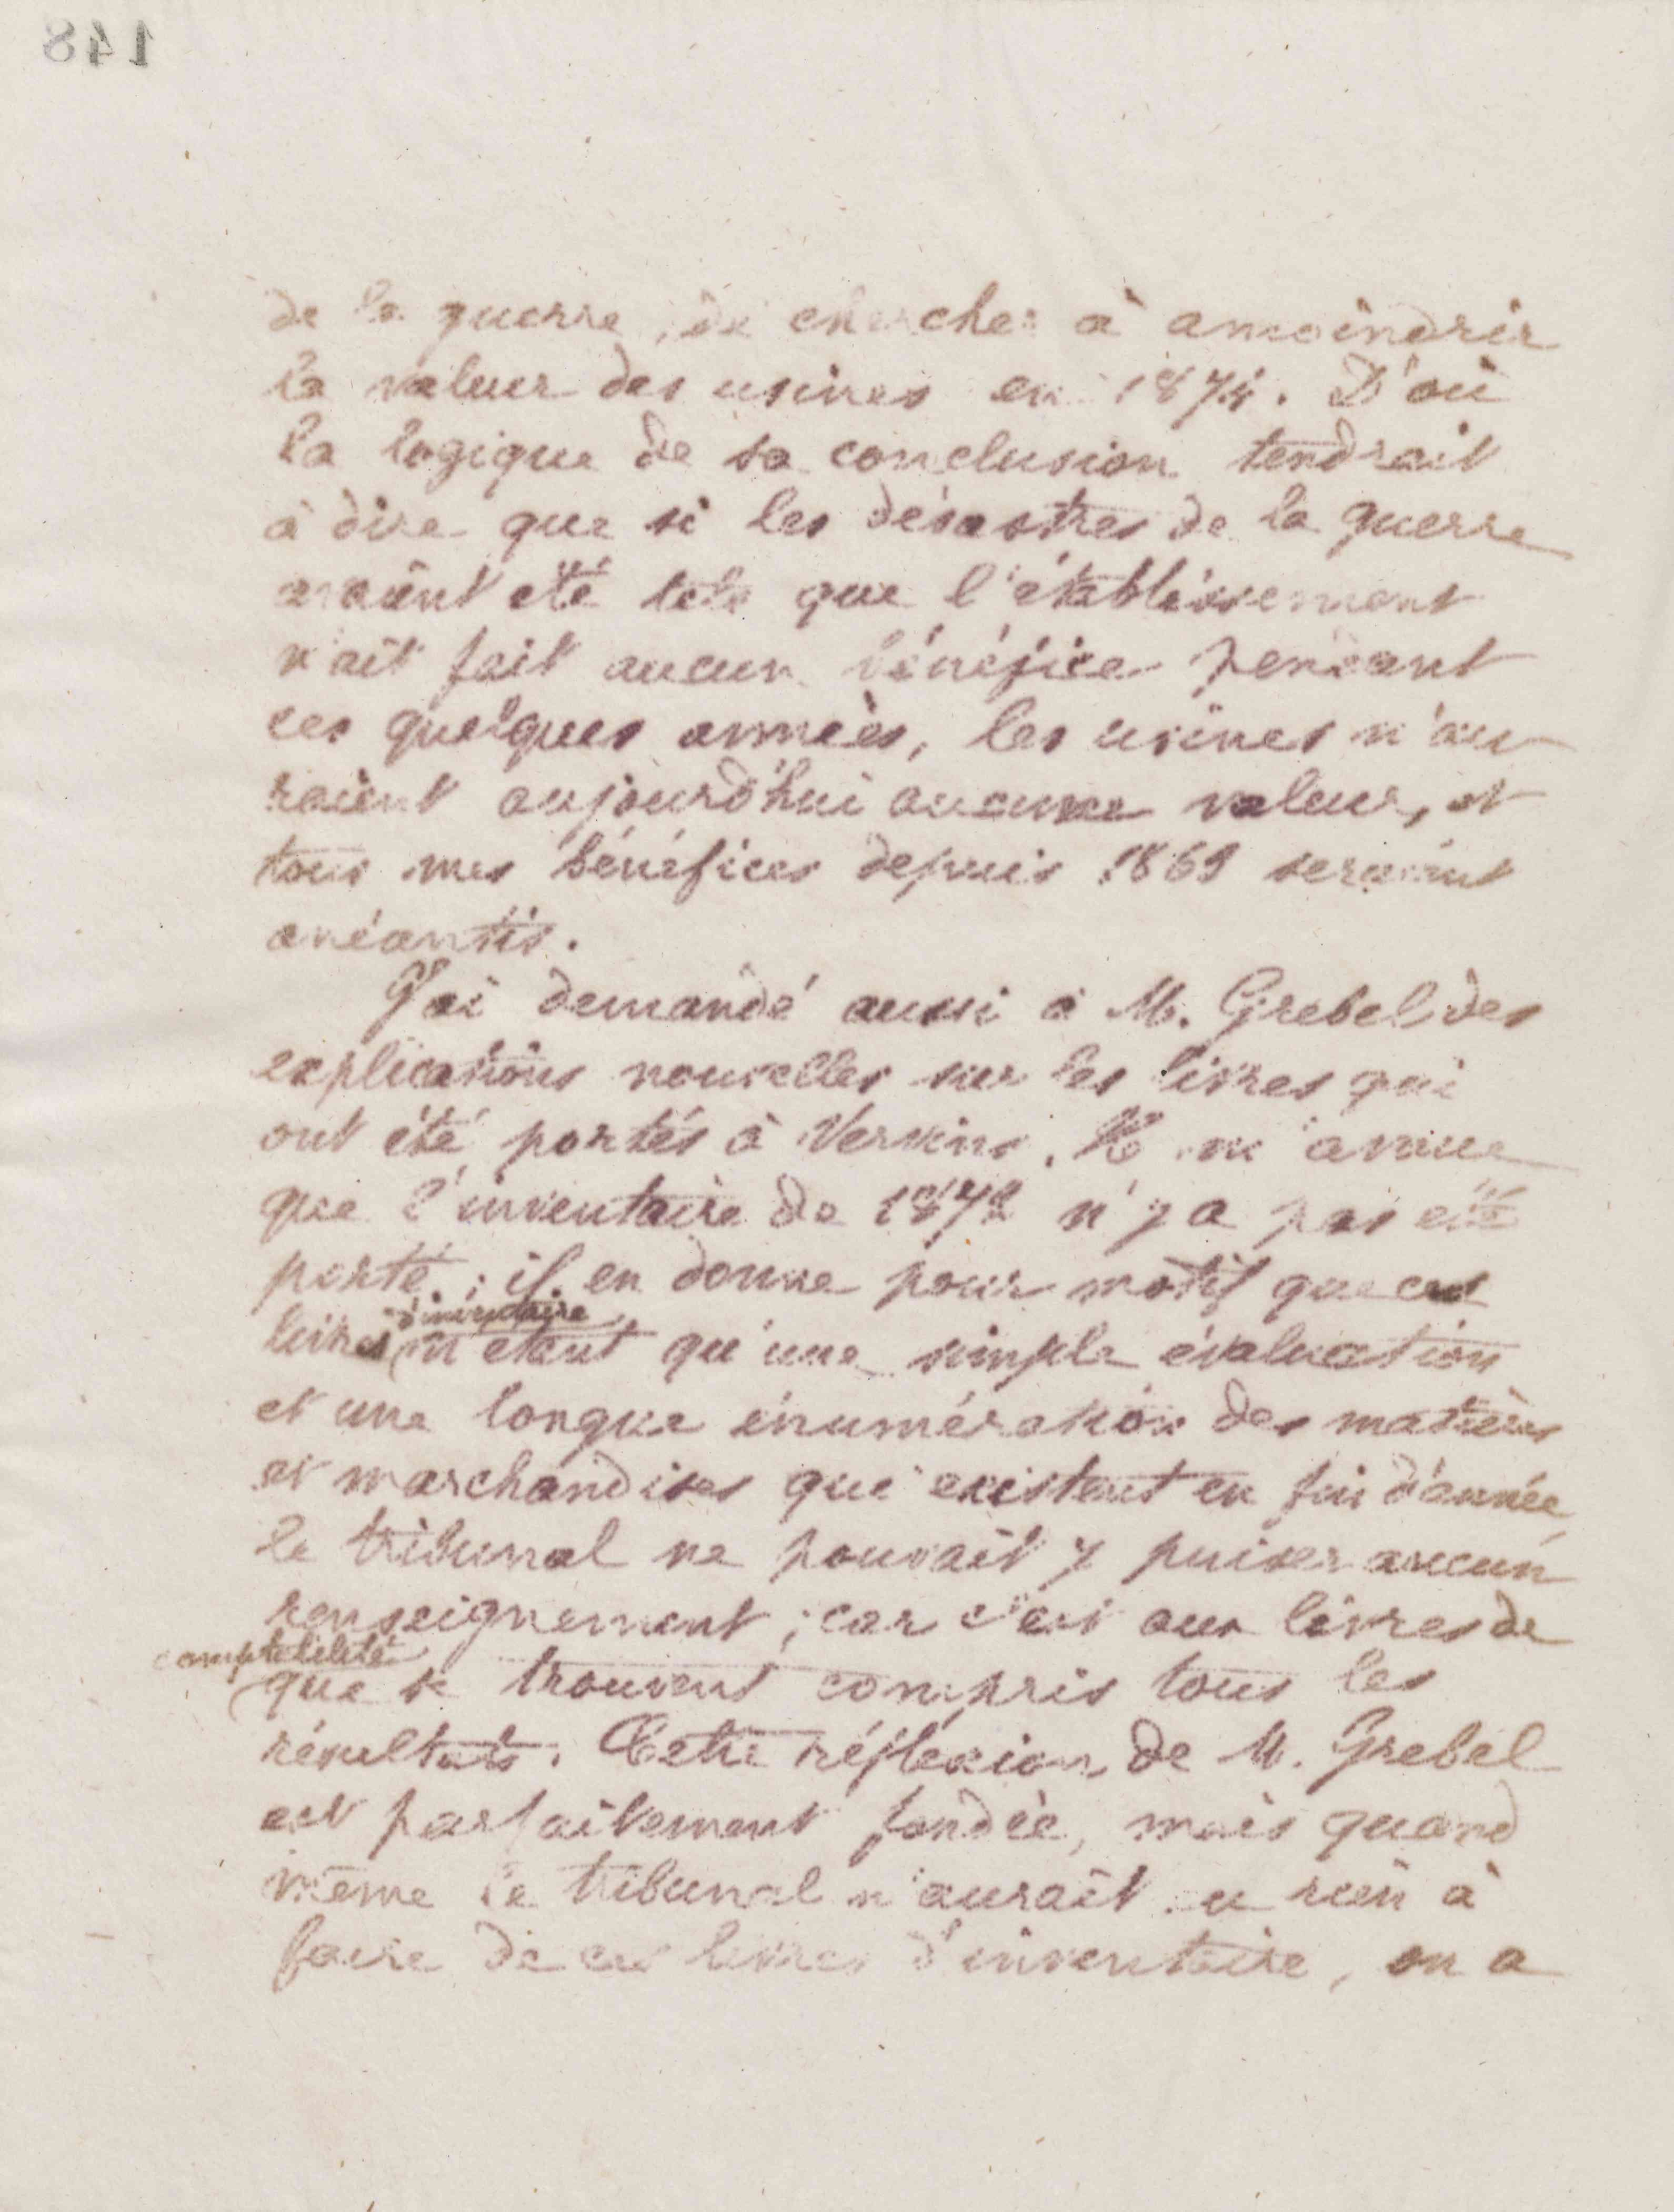 148
de la guerre, de chercher à amoindrir
la valeur des usines en 1874. D'où
la logique de sa conclusion tendrait
à dire que si les désastres de la guerre
avaient été tels que l'établissement
n'ait fait aucun bénéfice pendant
ces quelques années, les usines n'au-
raient aujourd'hui aucune valeur, et
tous mes bénéfices depuis 1869 seraient
anéantis.
J'ai demandé aussi à M. Grebel des
explications nouvelles sur les livres qui
ont été portés à Vervins. Il m'avoue
que l'inventaire de 1872 n'y a pas été
porté ; il en donne pour motif que ces
d'inventaire
livres n'étant qu'une simple évaluation
et une longue énumération des matières
et marchandises qui existent en fin d'année,
le tribunal ne pouvait y puiser aucun
renseignement ; car c'est aux livres de
comptabilité
que se trouvent compris tous les
résultats. Cette réflexion de M. Grebel
est parfaitement fondée, mais quand
même le tribunal n'aurait eu rien à
faire de ces livres d'inventaire, on a